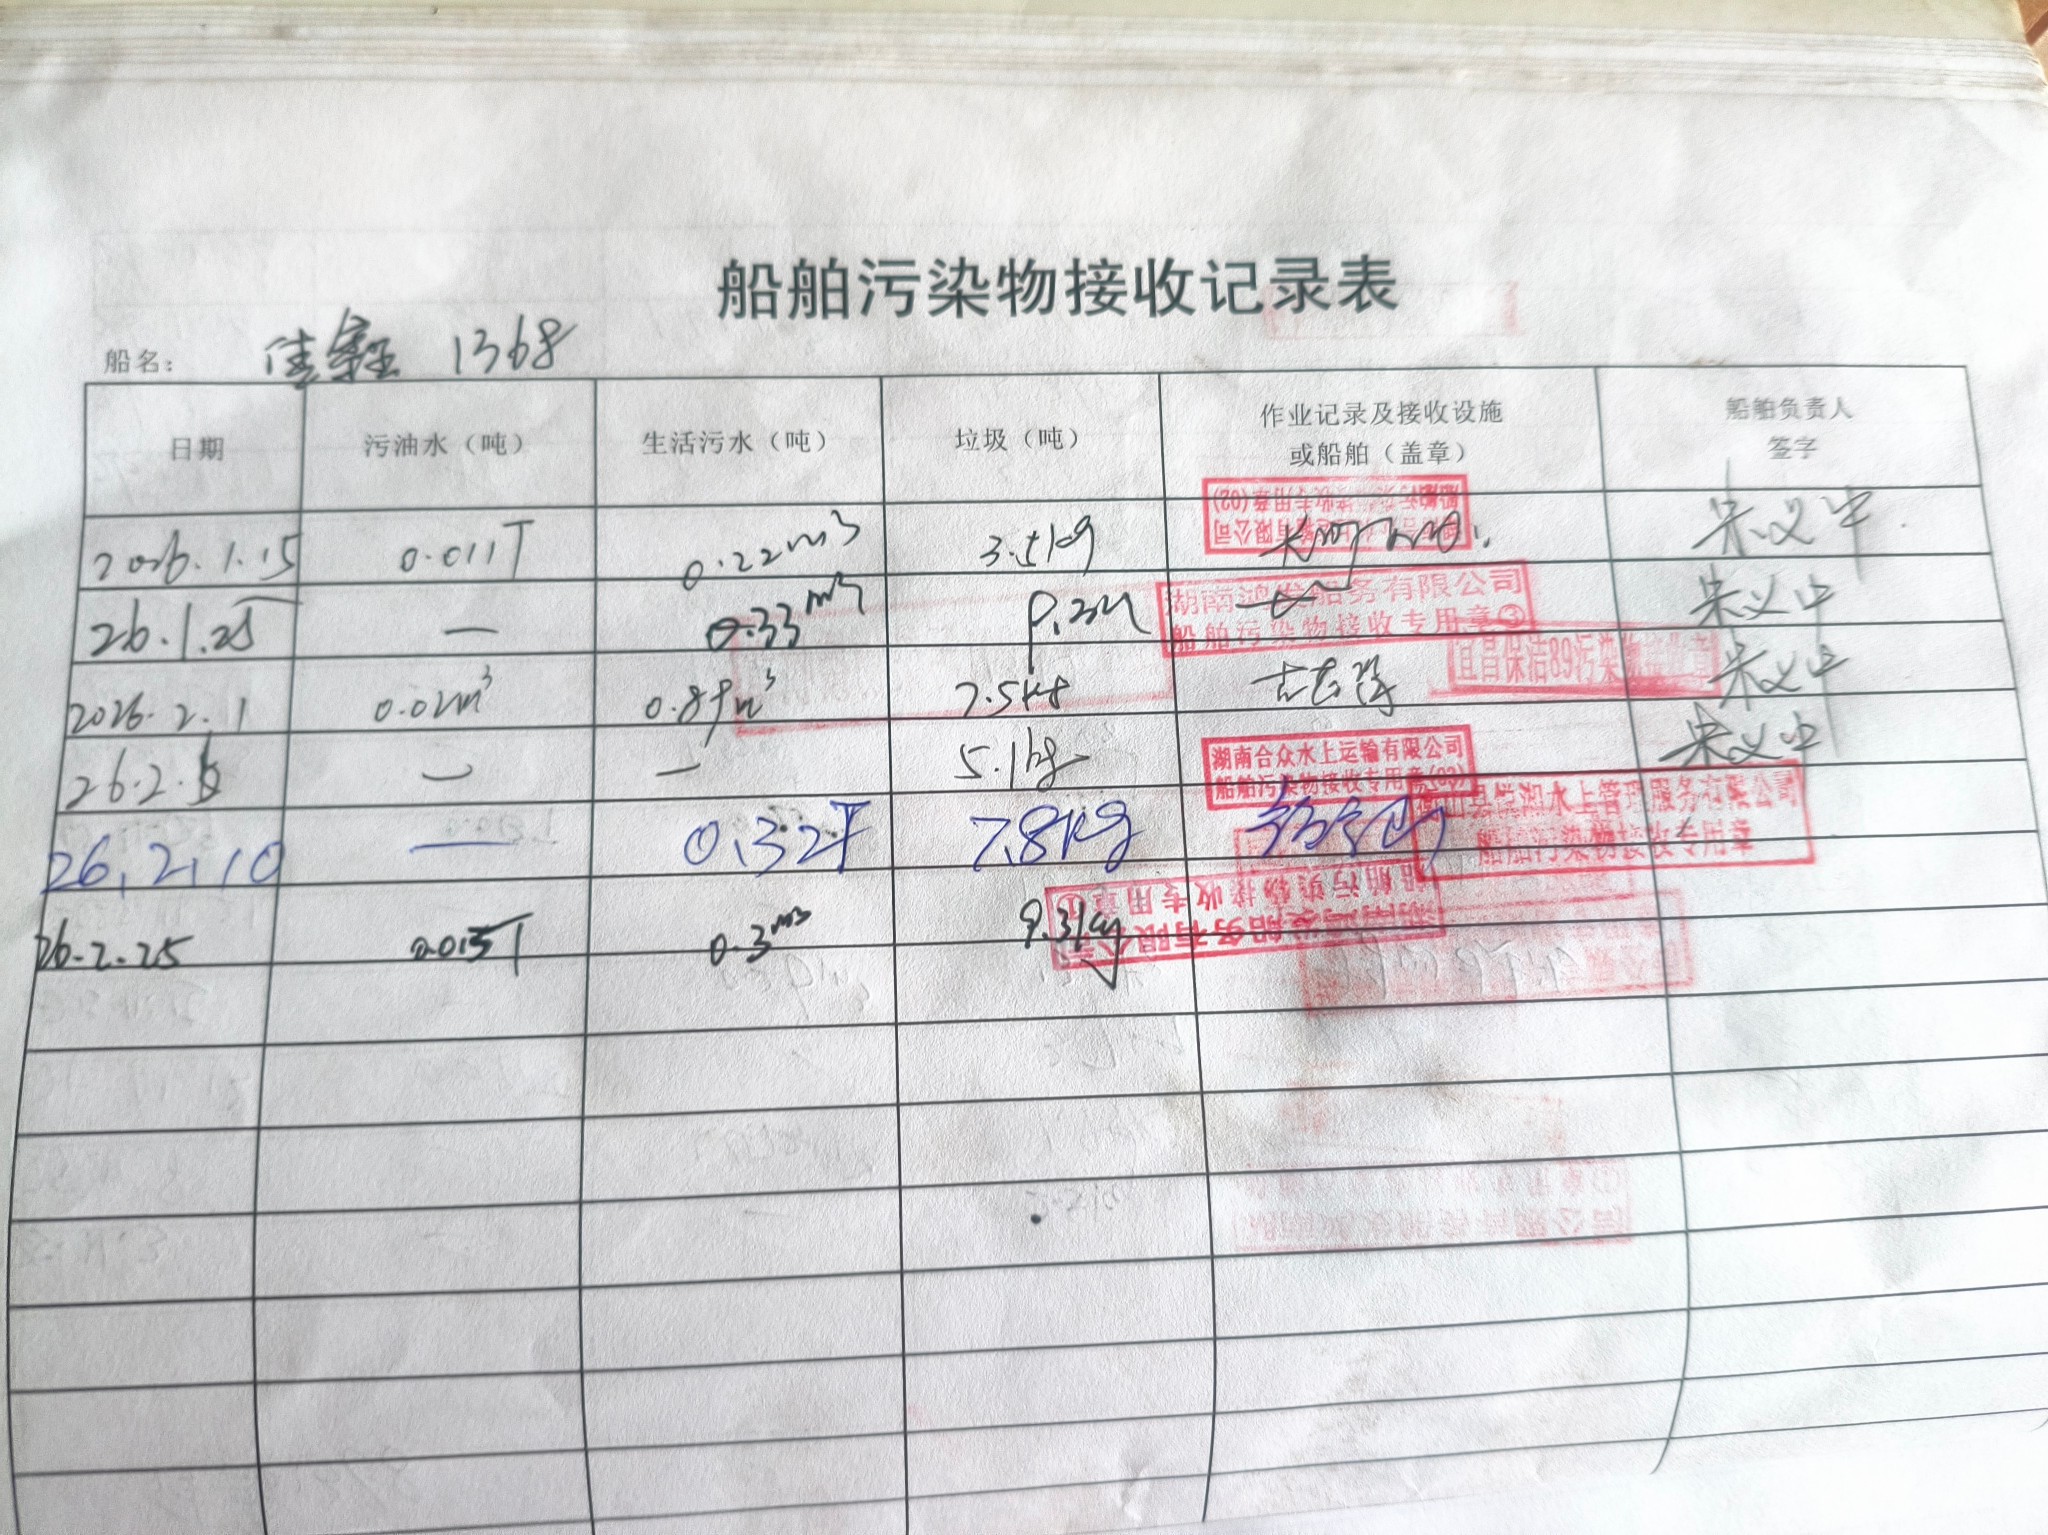 船舶污染物接收记录表
船名： 佳鑫 1368
日期 污油水（吨） 生活污水（吨） 垃圾（吨） 作业记录及接收设施或船舶（盖章） 船舶负责人签字
2026.1.15 0.011T 0.22m3 3.5kg 朱义中
船舶污染物接收专用章(02)
26.1.25 — 0.33m3 朱义中
湖南鸿发船务有限公司
船舶污染物接收专用章③
2026.2.1 0.02m3 0.89m3 7.5kg 朱义中
宜昌保洁89污染物
26.2.5 — — 5.1kg 朱义中
湖南合众水上运输有限公司
船舶污染物接收专用章(03)
26.2.10 — 0.32T 7.8kg
水上管理服务有限公司
船舶污染物接收专用章
26.2.25 0.015T 0.3m3 9.3kg
船舶污染物接收专用章①
湖南鸿发船务有限公司